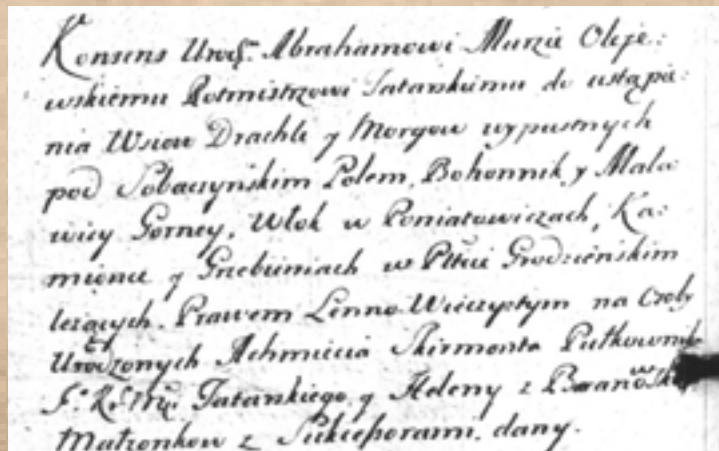 Konsens Urodz. Abrahamowi Murzie Oleje:
wskiemu Rotmistrzowi Tatarskiemu do ustąpie:
nia Wsiow Drachle y Morgow wypustnych
pod Sobaczyńskim Polem, Bohonnik, y Mala:
wicy Gorney, Włok w Poniatowiczach, Ka:
mionce y Grzebieniach w Pttcie Grodzieńskim
leżących. Prawem Lenno Wieczystym na Osoby
Urodzonych Achmiecia Skirmonta Pułkownika
Tatarskiego, y Heleny z
Małżonkow z Sukcessorami, dany.